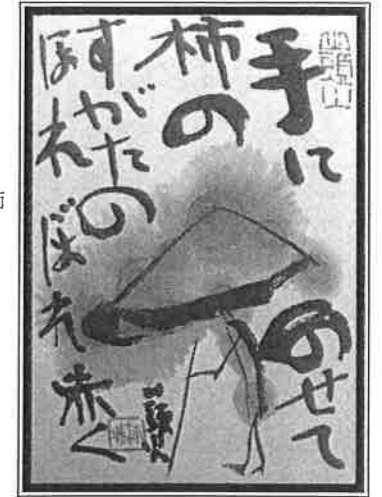 手にのせて
柿の
すがたの
ほれぼれ赤く